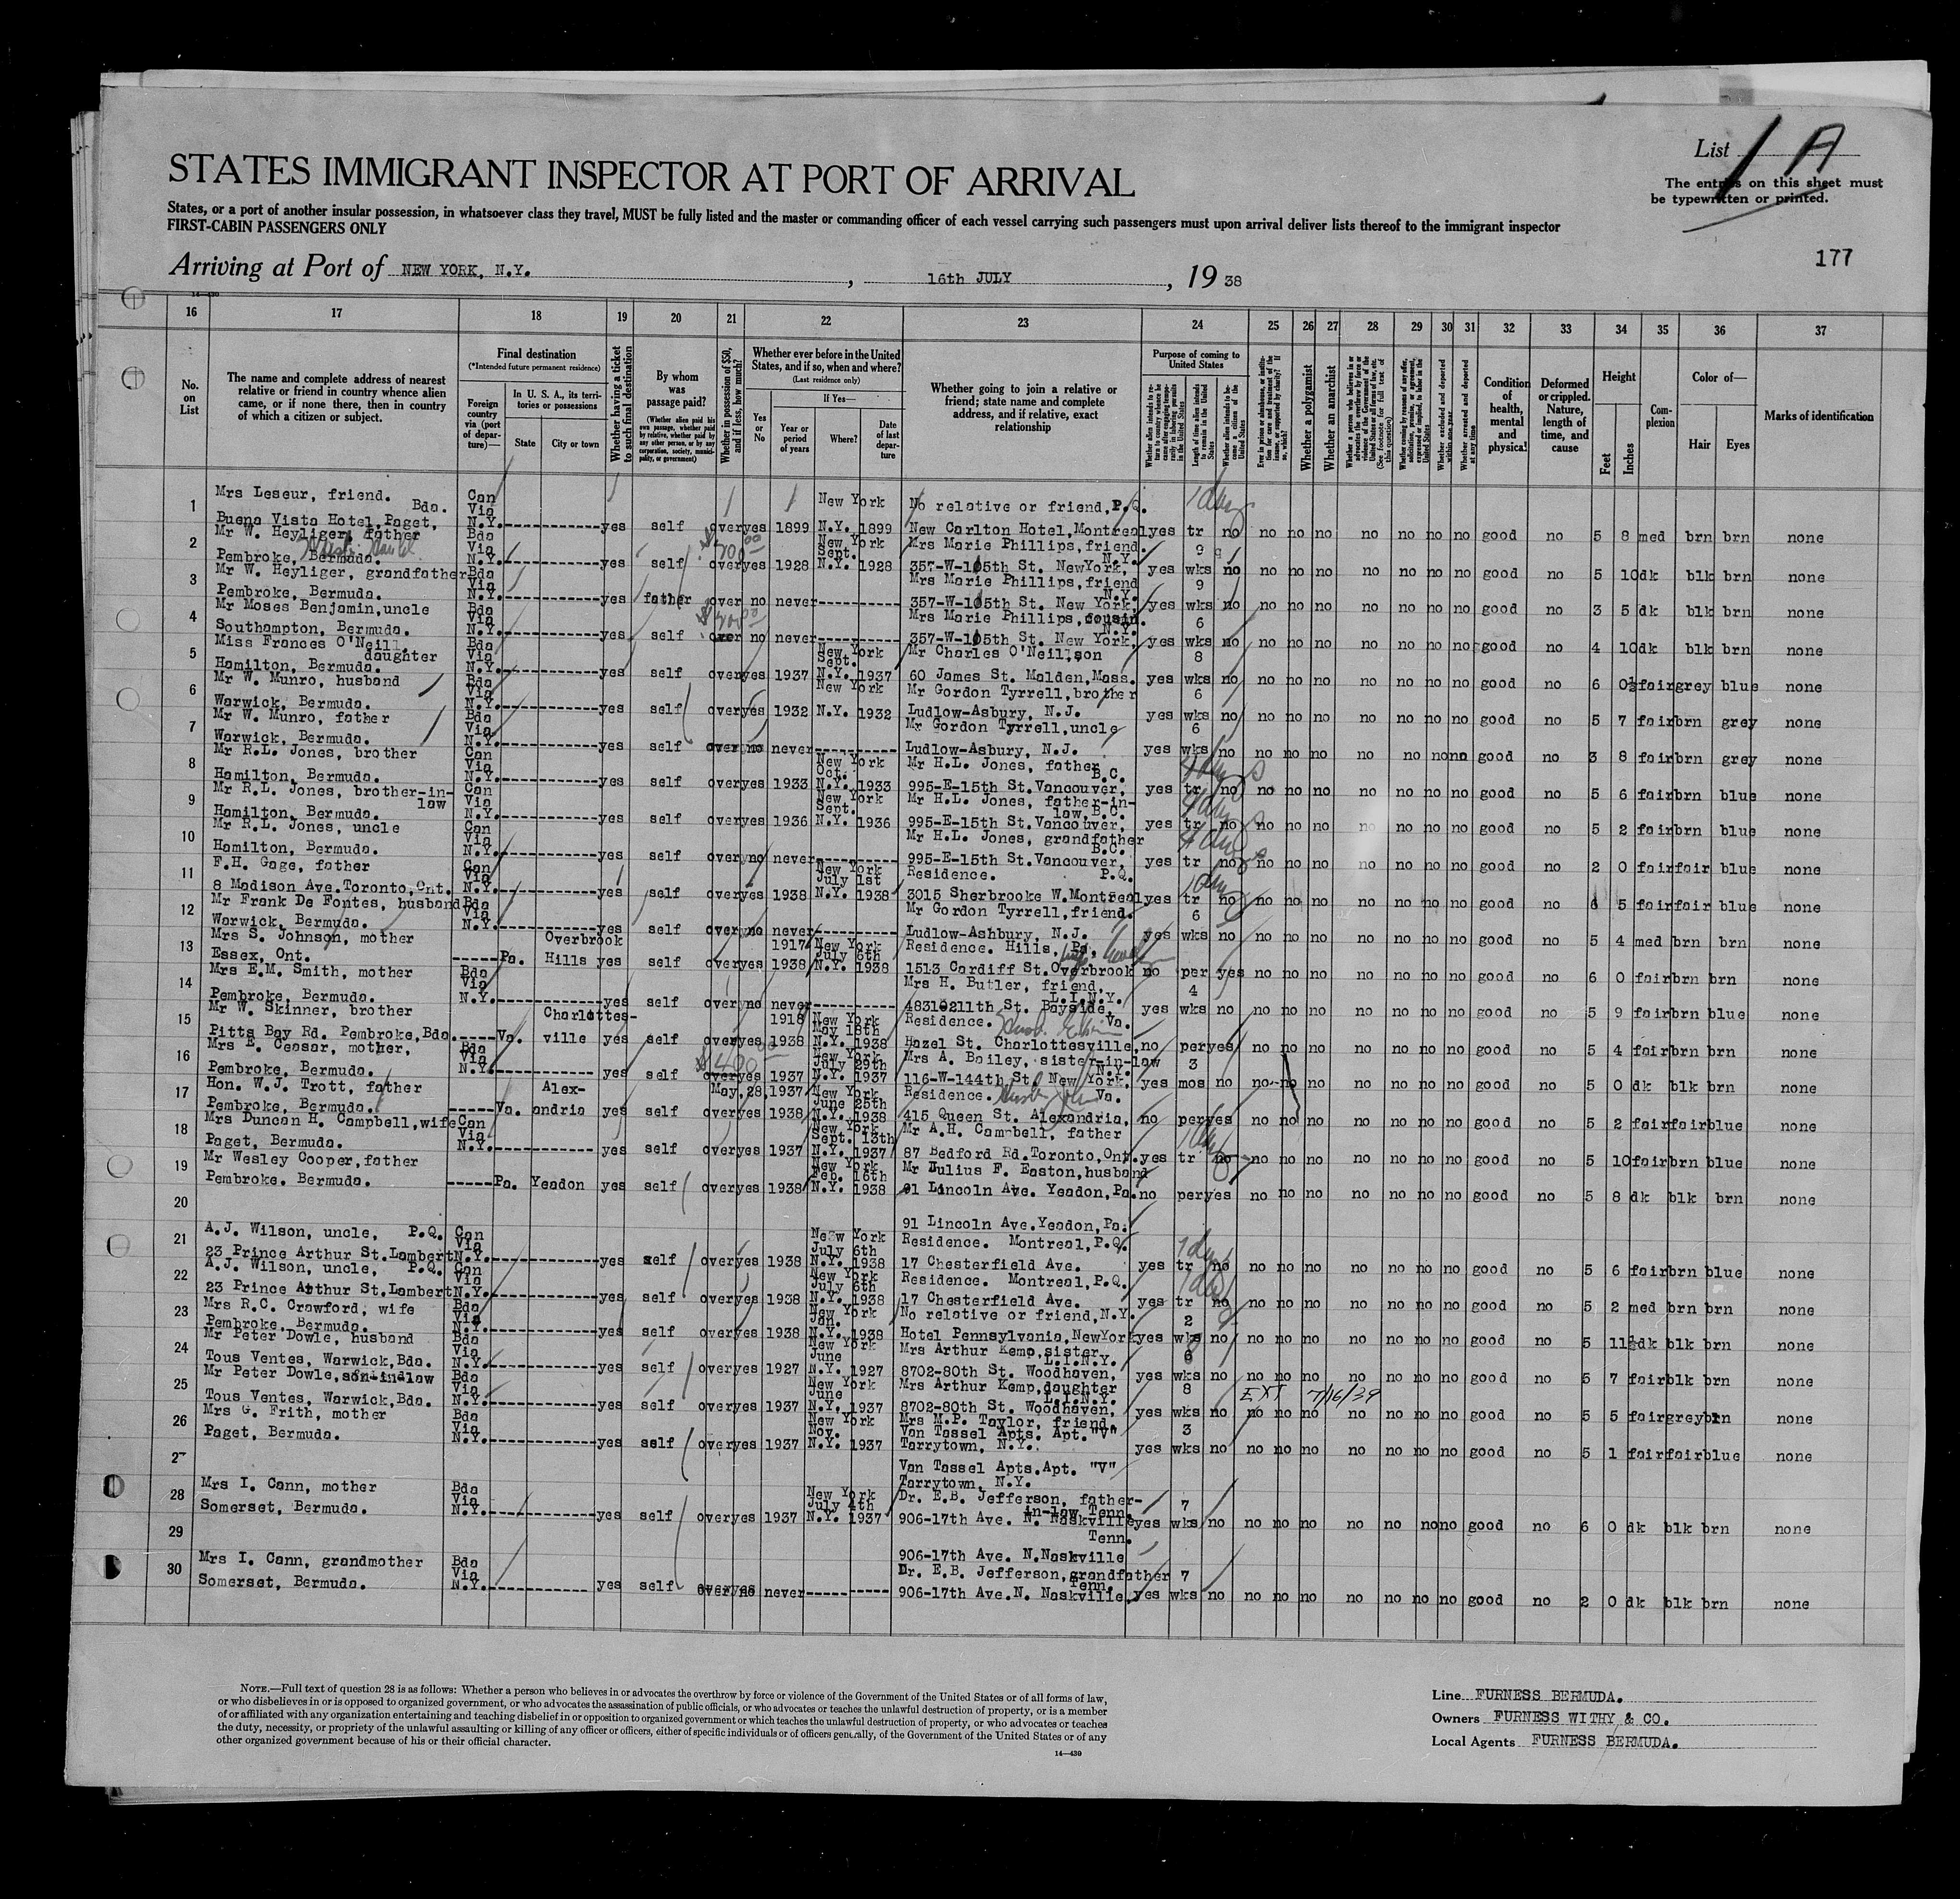 List 1 A
The entries on this sheet must
be typewritten or printed.
STATES IMMIGRANT INSPECTOR AT PORT OF ARRIVAL
States, or a port of another insular possession, in whatsoever class they travel, MUST be fully listed and the master or commanding officer of each vessel carrying such passengers must upon arrival deliver lists thereof to the immigrant inspector
FIRST-CABIN PASSENGERS ONLY
177
Arriving at Port of NEW YORK, N.Y. , 16th JULY , 19 38
16 17 18 19 20 21 22 23 24 25 26 27 28 29 30 31 32 33 34 35 36 37
No. on List
The name and complete address of nearest relative or friend in country whence alien came, or if none there, then in country of which a citizen or subject.
Final destination
(*Intended future permanent residence)
Foreign country via (port of departure)—
In U. S. A., its territories or possessions
State
City or town
Whether having a ticket to such final destination
By whom was passage paid?
(Whether alien paid his own passage, whether paid by relative, whether paid by any other person, or by any corporation, society, municipality, or government)
Whether in possession of $50, and if less, how much?
Whether ever before in the United States, and if so, when and where?
(Last residence only)
Yes or No
If Yes—
Year or period of years
Where?
Date of last departure
Whether going to join a relative or friend; state name and complete address, and if relative, exact relationship
Purpose of coming to United States
Length of time alien intends to remain in the United States
Whether alien intends to become a citizen of the United States
Whether a polygamist
Whether an anarchist
Condition of health, mental and physical
Deformed or crippled. Nature, length of time, and cause
Height
Feet
Inches
Complexion
Color of—
Hair
Eyes
Marks of identification
1 Mrs Leseur, friend. Bda. Can Via New York No relative or friend, P.Q. 1 day
Buena Vista Hotel, Paget, N.Y. yes self over yes 1899 N.Y. 1899 New Carlton Hotel, Montreal yes tr no no no no no no no no good no 5 8 med brn brn none
2 Mr W. Heyliger, father Bda Via New York Sept. Mrs Marie Phillips, friend. N.Y. 9
Pembroke, Bermuda. N.Y. yes self over yes 1928 N.Y. 1928 357-W-105th St. NewYork, yes wks no no no no no no no no good no 5 10 dk blk brn none
3 Mr W. Heyliger, grandfather Bda Via Mrs Marie Phillips, friend N.Y. 9
Pembroke, Bermuda. N.Y. yes father over no never 357-W-105th St. New York, yes wks no no no no no no no no good no 3 5 dk blk brn none
4 Mr Moses Benjamin, uncle Bda Via Mrs Marie Phillips, cousin. N.Y. 6
Southampton, Bermuda. N.Y. yes self over no never 357-W-105th St. New York, yes wks no no no no no no no no good no 4 10 dk blk brn none
5 Miss Frances O'Neill, daughter Bda Via New York Sept. Mr Charles O'Neill, son 8
Hamilton, Bermuda. N.Y. yes self over yes 1937 N.Y. 1937 60 James St. Malden, Mass. yes wks no no no no no no no no good no 6 0½ fair grey blue none
6 Mr W. Munro, husband Bda Via New York Mr Gordon Tyrrell, brother 6
Warwick, Bermuda. N.Y. yes self over yes 1932 N.Y. 1932 Ludlow-Asbury, N.J. yes wks no no no no no no no no good no 5 7 fair brn grey none
7 Mr W. Munro, father Bda Via Mr Gordon Tyrrell, uncle 6
Warwick, Bermuda. N.Y. yes self over no never Ludlow-Asbury, N.J. yes wks no no no no no no no no good no 3 8 fair brn grey none
8 Mr R.L. Jones, brother Can Via New York Oct. Mr H.L. Jones, father B.C. 4 days
Hamilton, Bermuda. N.Y. yes self over yes 1933 N.Y. 1933 995-E-15th St. Vancouver, yes tr no no no no no no no no good no 5 6 fair brn blue none
9 Mr R.L. Jones, brother-in-law Can Via New York Sept. Mr H.L. Jones, father-in-law, B.C. 4 days
Hamilton, Bermuda. N.Y. yes self over yes 1936 N.Y. 1936 995-E-15th St. Vancouver, yes tr no no no no no no no no good no 5 2 fair brn blue none
10 Mr R.L. Jones, uncle Can Via Mr H.L. Jones, grandfather B.C. 4 days
Hamilton, Bermuda. N.Y. yes self over no never 995-E-15th St. Vancouver, yes tr no no no no no no no no good no 2 0 fair fair blue none
11 F.H. Gage, father Can Via New York July 1st Residence. P.Q. 1 day
8 Madison Ave. Toronto, Ont. N.Y. yes self over yes 1938 N.Y. 1938 3015 Sherbrooke W. Montreal yes tr no no no no no no no no good no 5 fair fair blue none
12 Mr Frank De Fontes, husband Bda Via Mr Gordon Tyrrell, friend. 6
Warwick, Bermuda. N.Y. yes self over no never Ludlow-Ashbury, N.J. yes wks no no no no no no no no good no 5 4 med brn brn none
13 Mrs S. Johnson, mother Overbrook 1917 New York July 6th Residence. Hills, Pa.
Essex, Ont. Pa. Hills yes self over yes 1938 N.Y. 1938 1513 Cardiff St. Overbrook no per yes no no no no no no no good no 6 0 fair brn brn none
14 Mrs E.M. Smith, mother Bda Via Mrs H. Butler, friend, L.I.N.Y. 4
Pembroke, Bermuda. N.Y. yes self over no never 211th St. Bayside, yes wks no no no no no no no no good no 5 9 fair brn blue none
15 Mr W. Skinner, brother Charlottes- 1918 New York May 18th Residence. Va.
Pitts Bay Rd. Pembroke, Bda. Va. ville yes self over yes 1938 N.Y. 1938 Hazel St. Charlottesville, no per yes no no no no no no no good no 5 4 fair brn brn none
16 Mrs E. Ceasar, mother, Bda Via $400.00 New York July 29th Mrs A. Bailey, sister-in-law N.Y. 3
Pembroke, Bermuda. N.Y. yes self over yes 1937 N.Y. 1937 116-W-144th St. New York, yes mos no no no no no no no no good no 5 0 dk blk brn none
17 Hon. W.J. Trott, father Alex- May, 28, 1937 New York June 25th Residence. Va.
Pembroke, Bermuda. Va. andria yes self over yes 1938 N.Y. 1938 415 Queen St. Alexandria, no per yes no no no no no no no good no 5 2 fair fair blue none
18 Mrs Duncan H. Campbell, wife Can Via New York Sept. 13th Mr A.H. Campbell, father 1 day
Paget, Bermuda. N.Y. yes self over yes 1937 N.Y. 1937 87 Bedford Rd. Toronto, Ont. yes tr no no no no no no no no good no 5 10 fair brn blue none
19 Mr Wesley Cooper, father New York Feb. 16th Mr Julius F. Easton, husband
Pembroke. Bermuda. Pa. Yeadon yes self over yes 1938 N.Y. 1938 91 Lincoln Ave. Yeadon, Pa. no per yes no no no no no no no good no 5 8 dk blk brn none
20 91 Lincoln Ave. Yeadon, Pa.
21 A.J. Wilson, uncle, P.Q. Can Via New York July 6th Residence. Montreal, P.Q. 1 day
23 Prince Arthur St. Lambert N.Y. yes self over yes 1938 N.Y. 1938 17 Chesterfield Ave. yes tr no no no no no no no no good no 5 6 fair brn blue none
22 A.J. Wilson, uncle, P.Q. Can Via New York July 6th Residence. Montreal, P.Q. 1 day
23 Prince Arthur St. Lambert N.Y. yes self over yes 1938 N.Y. 1938 17 Chesterfield Ave. yes tr no no no no no no no no good no 5 2 med brn brn none
23 Mrs R.C. Crawford, wife Bda Via New York Jan. No relative or friend, N.Y. 2
Pembroke, Bermuda. N.Y. yes self over yes 1938 N.Y. 1938 Hotel Pennsylvania, NewYork yes wks no no no no no no no no good no 5 11½ dk blk brn none
24 Mr Peter Dowle, husband Bda Via New York June Mrs Arthur Kemp, sister L.I.N.Y. 6
Tous Ventes, Warwick, Bda. N.Y. yes self over yes 1927 N.Y. 1927 8702-80th St. Woodhaven, yes wks no no no no no no no no good no 5 7 fair blk brn none
25 Mr Peter Dowle, son-in-law Bda Via New York June Mrs Arthur Kemp, daughter L.I.N.Y. 8 EXT 7/16/39
Tous Ventes, Warwick, Bda. N.Y. yes self over yes 1937 N.Y. 1937 8702-80th St. Woodhaven, yes wks no no no no no no no no good no 5 5 fair grey brn none
26 Mrs G. Frith, mother Bda Via New York Nov. Mrs M.P. Taylor, friend. Van Tassel Apts. Apt. "V" 3
Paget, Bermuda. N.Y. yes self over yes 1937 N.Y. 1937 Tarrytown, N.Y. yes wks no no no no no no no no good no 5 1 fair fair blue none
27 Van Tassel Apts. Apt. "V"
Tarrytown, N.Y.
28 Mrs I. Cann, mother Bda Via New York July 4th Dr. E.B. Jefferson, father-in-law Tenn. 7
Somerset, Bermuda. N.Y. yes self over yes 1937 N.Y. 1937 906-17th Ave. N. Naskville yes wks no no no no no no no no good no 6 0 dk blk brn none
29 Tenn.
906-17th Ave. N. Naskville
30 Mrs I. Cann, grandmother Bda Via Dr. E.B. Jefferson, grandfather Tenn. 7
Somerset, Bermuda. N.Y. yes self over no never 906-17th Ave. N. Naskville, yes wks no no no no no no no no good no 2 0 dk blk brn none
NOTE.—Full text of question 28 is as follows: Whether a person who believes in or advocates the overthrow by force or violence of the Government of the United States or of all forms of law,
or who disbelieves in or is opposed to organized government, or who advocates the assassination of public officials, or who advocates or teaches the unlawful destruction of property, or is a member
of or affiliated with any organization entertaining and teaching disbelief in or opposition to organized government or which teaches the unlawful destruction of property, or who advocates or teaches
the duty, necessity, or propriety of the unlawful assaulting or killing of any officer or officers, either of specific individuals or of officers generally, of the Government of the United States or of any
other organized government because of his or their official character.
14—430
Line FURNESS BERMUDA.
Owners FURNESS WITHY & CO.
Local Agents FURNESS BERMUDA.